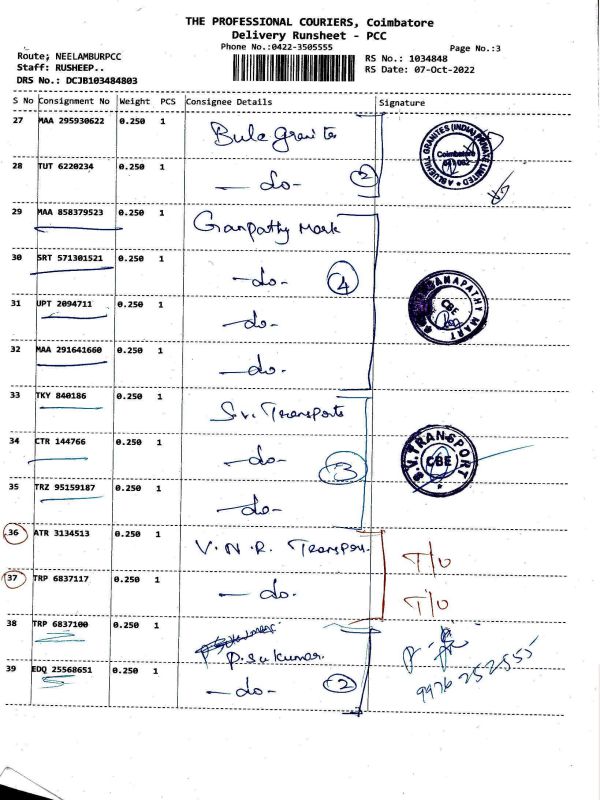 THE PROFESSIONAL COURIERS, Coimbatore
Delivery Runsheet - PCC
Phone No.:0422-3505555
Page No.:3
Route; NEELAMBURPCC
RS No.: 1034848
Staff: RUSHEEP..
RS Date: 07-Oct-2022
DRS No.: DCJB103484803
S No Consignment No Weight PCS Consignee Details Signature
27 MAA 295930622 0.250 1
28 TUT 6220234 0.250 1 - do - 2
29 MAA 858379523 0.250 1 Ganpathy Mark
30 SRT 571301521 0.250 1 -do- 4
31 UPT 2094711 0.250 1 -do-
32 MAA 291641660 0.250 1 -do-
33 TKY 840186 0.250 1 S.V. Transports
34 CTR 144766 0.250 1 -do- 3
S.V.TRANSPORT
CBE
35 TRZ 95159187 0.250 1 -do-
36 ATR 3134513 0.250 1 V.N.R. Transport. T/O
37 TRP 6837117 0.250 1 - do. T/O
38 TRP 6837100 0.250 1 P.Sukumar.
39 EDQ 25568651 0.250 1 -do- 2 9976252555